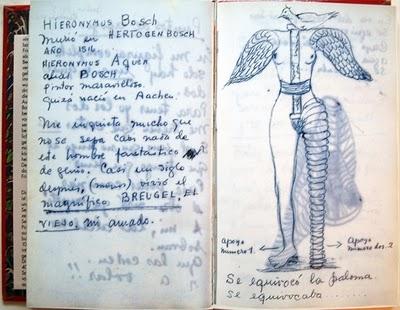 HIERONYMUS BOSCH
Murió en HERTOGENBOSCH
AÑO 1516
HIERONYMUS AQUEN
alias BOSCH
pintor maravilloso.
quizá nació en Aachen.
Me inquieta mucho que
no se sepa casi nada de
este hombre fantastico
de genio. Casi un siglo
despues, (menos) vivió el
magnífico BREUGEL, EL
VIEJO, mi amado.
Apoyo
numero 1.
Apoyo
numero dos. 2
Se equivocó la paloma
Se equivocaba.......